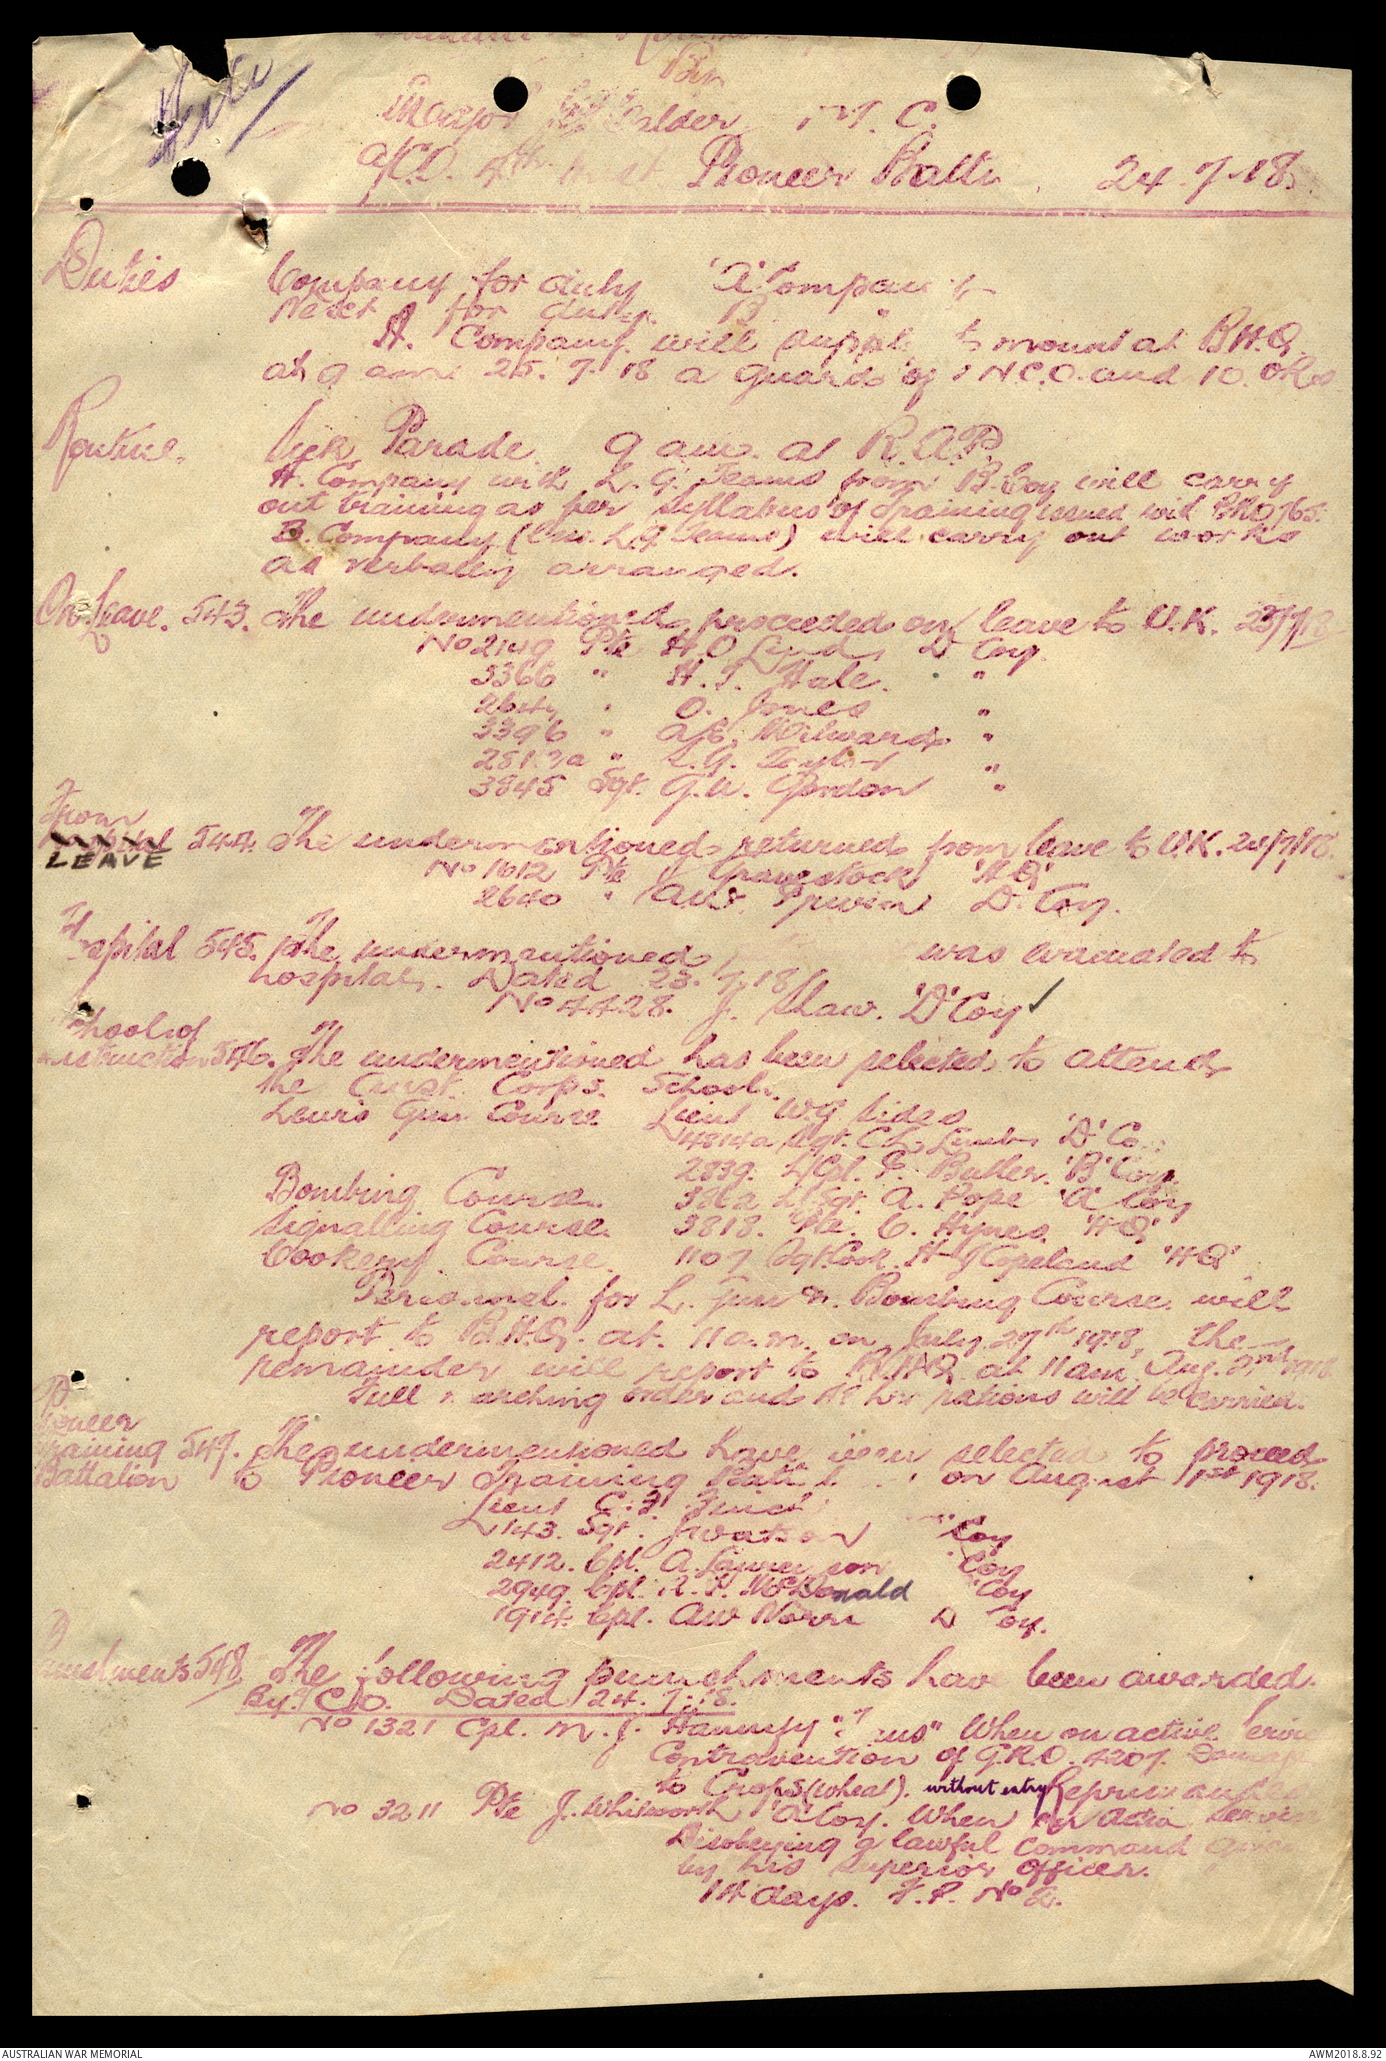 By
Major Calder, M.C.
a/C.O. 4th Aust Pioneer Battn. 24.7.18.
Duties Company for duty 'A' Company
Next for duty. B "
A. Company will supply to mount at B.H.Q.
at 9 am 25.7.18 a guard of 1 N.C.O. and 10. ORs
Routine. Sick Parade 9 am. at R.A.P.
A. Company with L.G. Teams from B. Coy will carry
out training as per syllabus of Training issued with BRO 765.
B. Company (less L.G. Teams) will carry out works
as verbally arranged.
On Leave. 543. The undermentioned proceeded on leave to U.K. 23/7/18
No 2149 Pte H.O. D Coy.
3366 " H.T. Hale. "
2649 " O. Jones "
3396 " A.E. Milward "
" L.G. Taylor "
3845 Sgt. G.W. Gordon "
From
LEAVE 544. The undermentioned returned from leave to U.K. 24/7/18.
No 1612 Pte Gravestock 'HQ'
2640 " A.W. Irwin D. Coy.
To
Hospital 545. The undermentioned was evacuated to
hospital. Dated 23.7.18
No 4428. J. Shaw. 'D' Coy ✓
School of
Instruction 546. The undermentioned has been selected to attend
the Aust. Corps. School.
Lewis Gun Course Lieut W.G. Sides
4814a Sgt. C.L. 'D' Co
2839. L/Cpl. F. Butler. 'B' Coy.
Bombing Course. 386a L/Sgt. A. Pope 'A' Coy
Signalling Course. 3818. Pte. C. Hynes 'HQ'
Cookery Course. 1107 Sgt Cook. H. J Copeland 'HQ'
Personnel for L. Gun & Bombing Course will
report to B.H.Q. at 11 a.m. on July 27th 1918, the
remainder will report to B.H.Q. at 11 am Aug. 2nd 1918
Full marching order and 48 hrs rations will be carried.
To
Pioneer
Training 547. The undermentioned have been selected to proceed
Battalion to Pioneer Training Battn on August 1st 1918.
Lieut C.F.
143. Sgt. J Watson Coy
2412. Cpl. A. Coy
2949. Cpl. R. P. McDonald Coy
1914. Cpl. AW Norris D Coy.
Punishments 548 The following punishments have been awarded.
By C/O. Dated 24.7.18.
No 1321 Cpl. M. J. Hannify "Trans" When on active Service
Contravention of G.R.O. 4207. Damage
to Crops (wheat). without entry Reprimanded
No 3211 Pte J. Whitworth 'A' Coy. When on Active Service
Disobeying a lawful command given
by his superior officer.
14 days. F.P. No 2.
AUSTRALIAN WAR MEMORIAL AWM2018.8.92